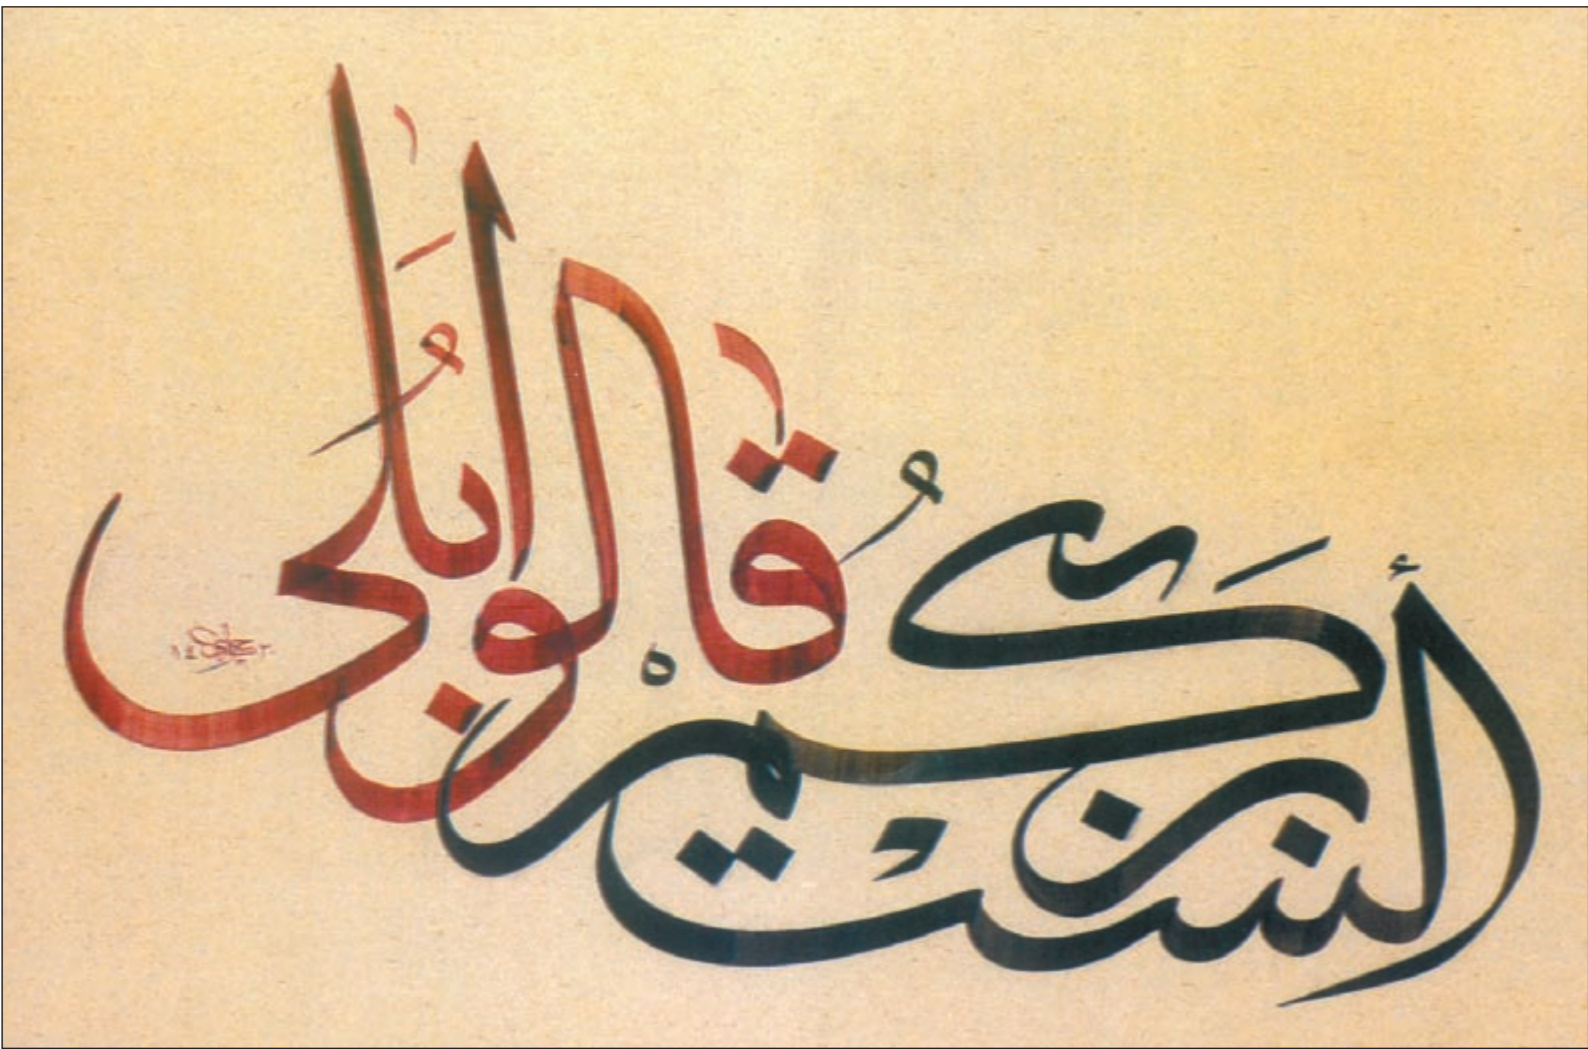 ألست بربكم قالوا بلى